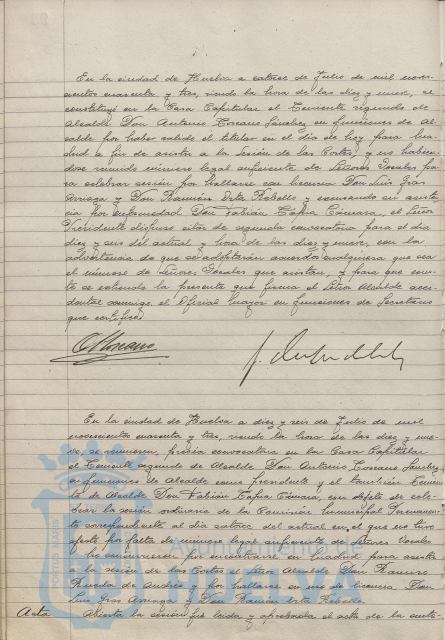 En la ciudad de Huelva a catorce de Julio de mil nove-
cientos cuarenta y tres, siendo la hora de las diez y nueve, se
constituyó en la Casa Capitular el Teniente segundo de
Alcalde Don Antonio Toscano Sanchez en funciones de Al-
calde por haber salido el titular en el dia de hoy para Ma-
drid a fin de asistir a la sesión de las Cortes, y no habien-
dose reunido número legal suficiente de Señores Vocales pa-
ra celebrar sesión, por hallarse con licencia Don Luis Gras
Arriaga y Don Ramón Orta Rebollo y excusando su asisten-
cia por enfermedad Don Fabián Tapia Cámara, el Señor
Presidente dispuso citar de segunda convocatoria para el dia
diez y seis del actual y hora de las diez y nueve, con la
advertencia de que se adoptarán acuerdos cualquiera que sea
el número de Señores Vocales que asistan, y para que cons-
te se extiende la presente que firma el Señor Alcalde acci-
dental conmigo, el Oficial Mayor en funciones de Secretario
que certifico.
Toscano
En la ciudad de Huelva a diez y seis de Julio de mil
novecientos cuarenta y tres, siendo la hora de las diez y nue-
ve, se reunieron, previa convocatoria en la Casa Capitular
el Teniente segundo de Alcalde Don Antonio Toscano Sanchez,
en funciones de Alcalde como presidente y el también Tenien-
te de Alcalde Don Fabián Tapia Cámara, con objeto de cele-
brar la sesión ordinaria de la Comisión Municipal Permanen-
te correspondiente al dia catorce del actual en el que no tuvo
efecto por falta de número legal suficiente de Señores Vocales
No concurrieron por encontrarse en Madrid para asistir
a la sesión de las Cortes el Señor Alcalde Don Ramiro
Rueda de Andrés y por hallarse en uso de licencia Don
Luis Gras Arriaga y Don Ramón Orta Rebollo.
Acta Abierta la sesión fué leida y aprobada el acta de la ante-